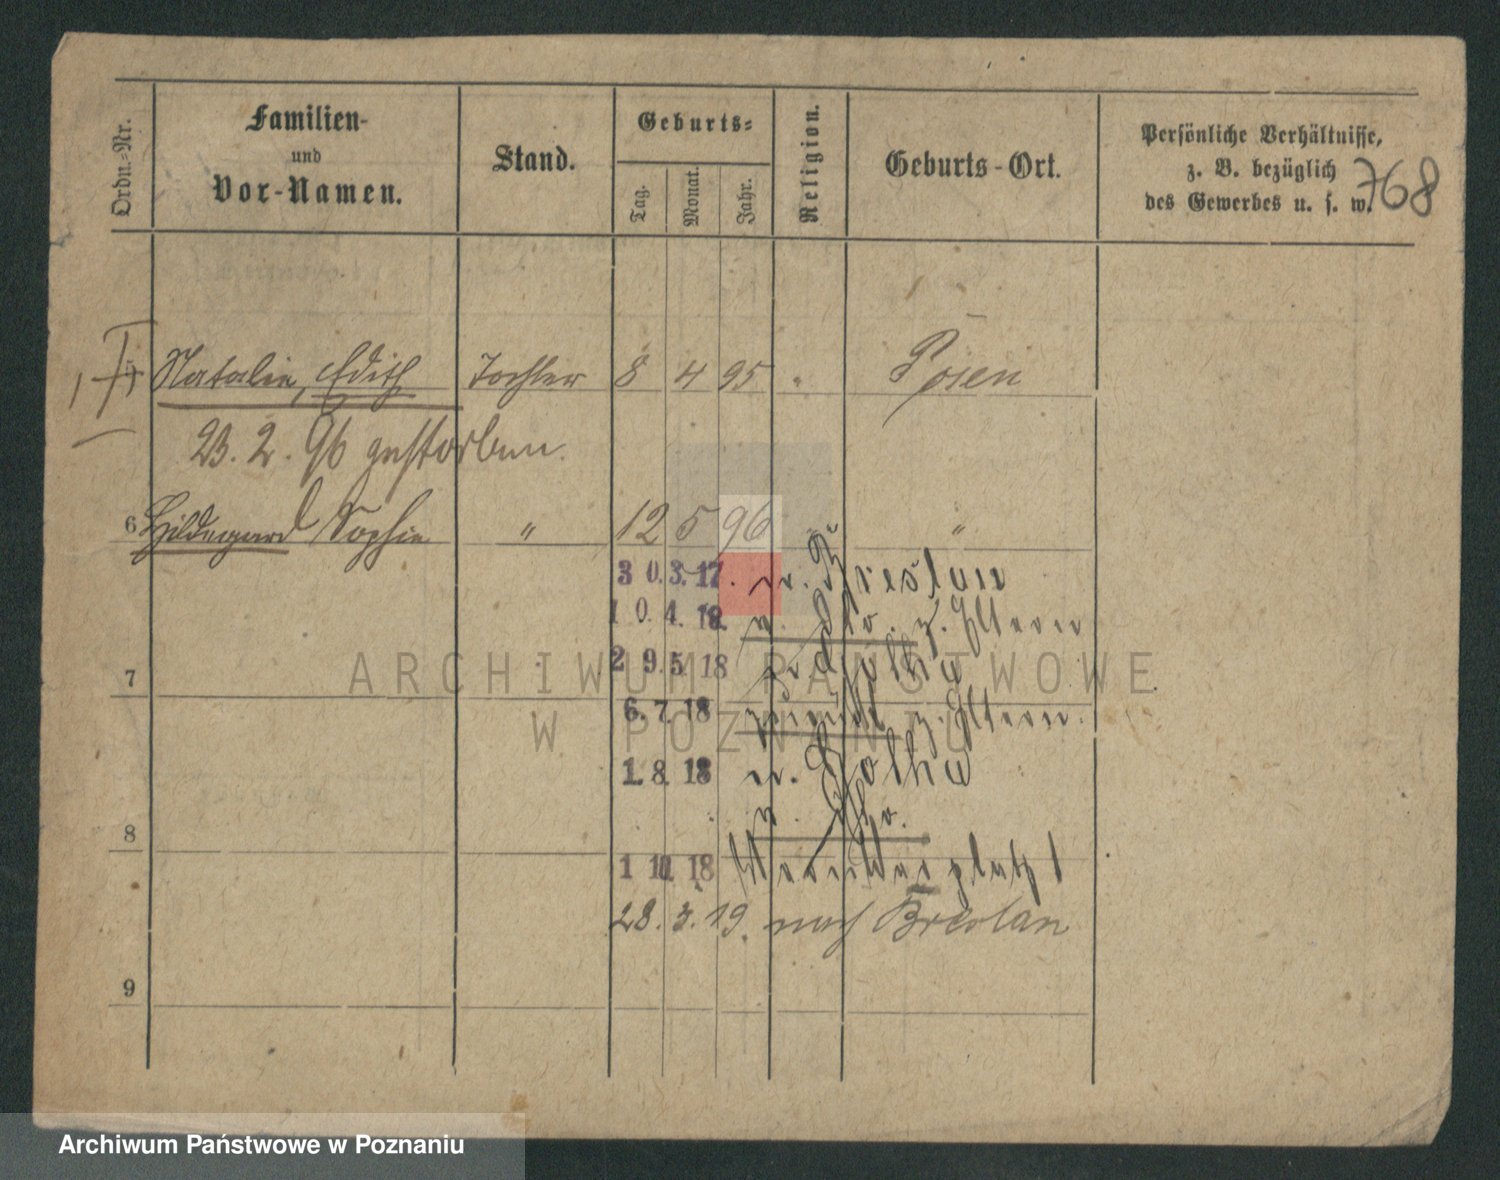 Ordn.-Nr.
Familien-
und
Vor-Namen.
Stand.
Geburts-
Tag.
Monat.
Jahr.
Religion.
Geburts-Ort.
Persönliche Verhältnisse,
z. B. bezüglich
des Gewerbes u. s. w.
768
Natalie, Edith Tochter 8 4 95 " Posen
23. 2. 96 gestorben.
6 Hildegard Sophie " 12 5 96 " "
30.3.17. n. Breslau
10.4.18. v. dto. z. Eltern
29.5.18 n. Gotha
7
6.7.18 zurück z. Eltern.
1.8.18 n. Gotha
v. dto.
8
1 11 18
28.3.19. nach Breslau
9
ARCHIWUM PAŃSTWOWE
W POZNANIU
Archiwum Państwowe w Poznaniu